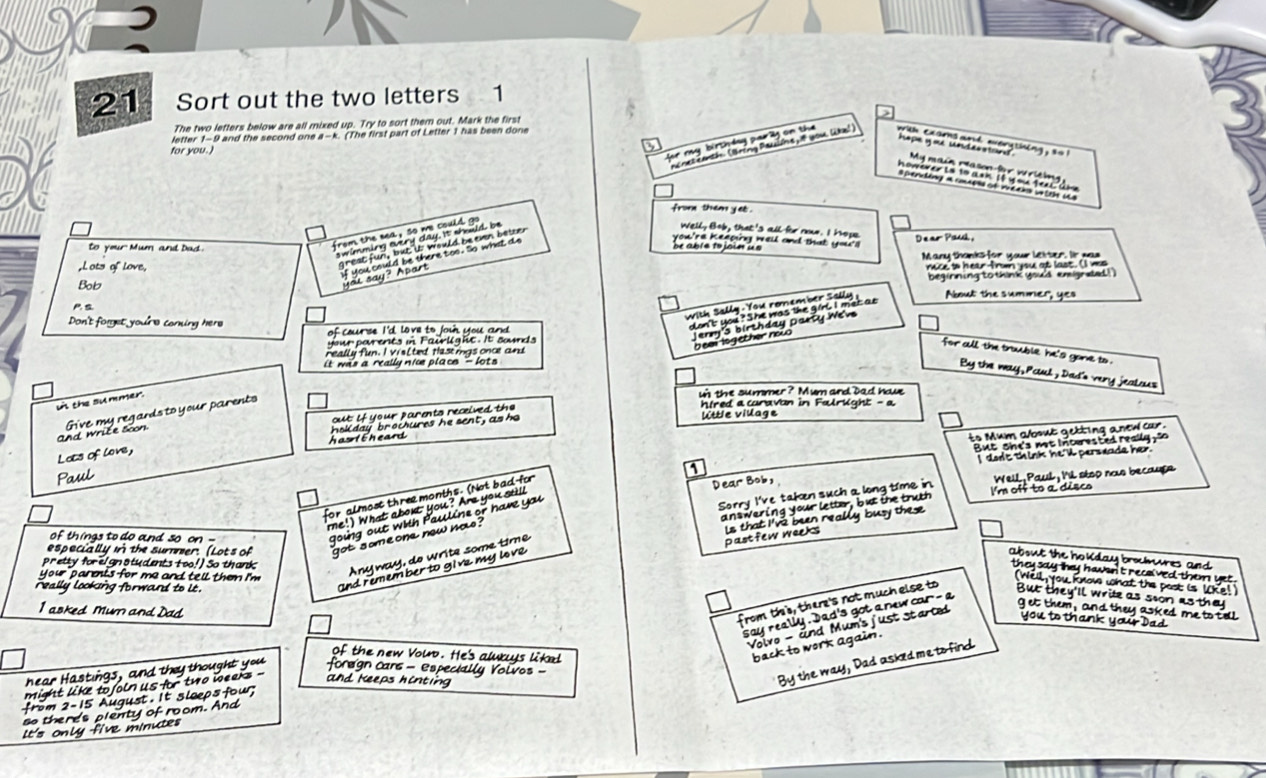 21 Sort out the two letters 1
The two letters below are all mixed up. Try to sort them out. Mark the first
letter 1–9 and the second one a–k. (The first part of Letter 1 has been done
for you.)
to your Mum and Dad.
Lots of love,
Bob
P.S.
Don't forget you're coming here
from the sea, so we could go
swimming every day. It should be
great fun, but it would be even better
if you could be there too. So what do
you say? Apart
of course I'd love to join you and
your parents in Fairlight. It sounds
really fun. I visited Hastings once and
it was a really nice place – lots
in the summer.
Give my regards to your parents
and write soon.
Lots of love,
Paul
out if your parents received the
holiday brochures he sent, as he
hasn't heard
of things to do and so on –
especially in the summer. (Lots of
pretty foreign students too!) So thank
your parents for me and tell them I'm
really looking forward to it.
I asked Mum and Dad
for almost three months. (Not bad for
me!) What about you? Are you still
going out with Pauline or have you
got someone new now?
Anyway, do write some time
and remember to give my love
near Hastings, and they thought you
might like to join us for two weeks –
from 2-15 August. It sleeps four,
so there's plenty of room. And
it's only five minutes
of the new Volvo. He's always liked
foreign cars – especially Volvos –
and keeps hinting
3
for my birthday party on the
nineteenth. (Bring Pauline, if you like!)
2
with exams and everything, so I
hope you understand.
My main reason for writing,
however is to ask if you feel like
spending a couple of weeks with us
from them yet.
Well, Bob, that's all for now. I hope
you're keeping well and that you'll
be able to join us
Dear Paul,
Many thanks for your letter. It was
nice to hear from you at last. (I was
beginning to think you'd emigrated!)
About the summer, yes
with Sally. You remember Sally,
don't you? She was the girl I met at
Jerry's birthday party. We've
been together now
for all the trouble he's gone to.
By the way, Paul, Dad's very jealous
in the summer? Mum and Dad have
hired a caravan in Fairlight – a
little village
to Mum about getting a new car.
But she's not interested really, so
I don't think he'll persuade her.
Well, Paul, I'll stop now because
I'm off to a disco
1
Dear Bob,
Sorry I've taken such a long time in
answering your letter, but the truth
is that I've been really busy these
past few weeks
about the holiday brochures and
they say they haven't received them yet.
(Well, you know what the post is like!)
But they'll write as soon as they
get them, and they asked me to tell
you to thank your Dad
from this, there's not much else to
say really. Dad's got a new car – a
Volvo – and Mum's just started
back to work again.
By the way, Dad asked me to find